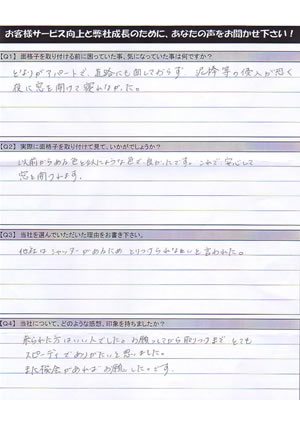 お客様サービス向上と弊社成長のために、あなたの声をお聞かせ下さい!
【Q1】 面格子を取り付ける前に困っていた事、気になっていた事は何ですか?
となりがアパートで、道路にも面しておらず 泥棒等の侵入が恐く
夜に窓を開けて寝れなかった。
【Q2】 実際に面格子を取り付けて見て、いかがでしょうか?
以前からある色と似たような色で良かったです。これで安心して
窓を開けれます。
【Q3】 当社を選んでいただいた理由をお書き下さい。
他社はシャッターがあるため とりつけられないと言われた。
【Q4】 当社について、どのような感想、印象を持ちましたか?
来られた方はいい人でした。お願いしてから取りつけまで とても
スピーディでありがたいと思いました。
また機会があればお願いしたいです。